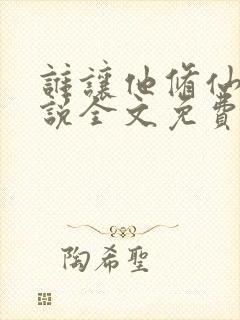 誰讓他脩仙
說全文免費
陶希聖